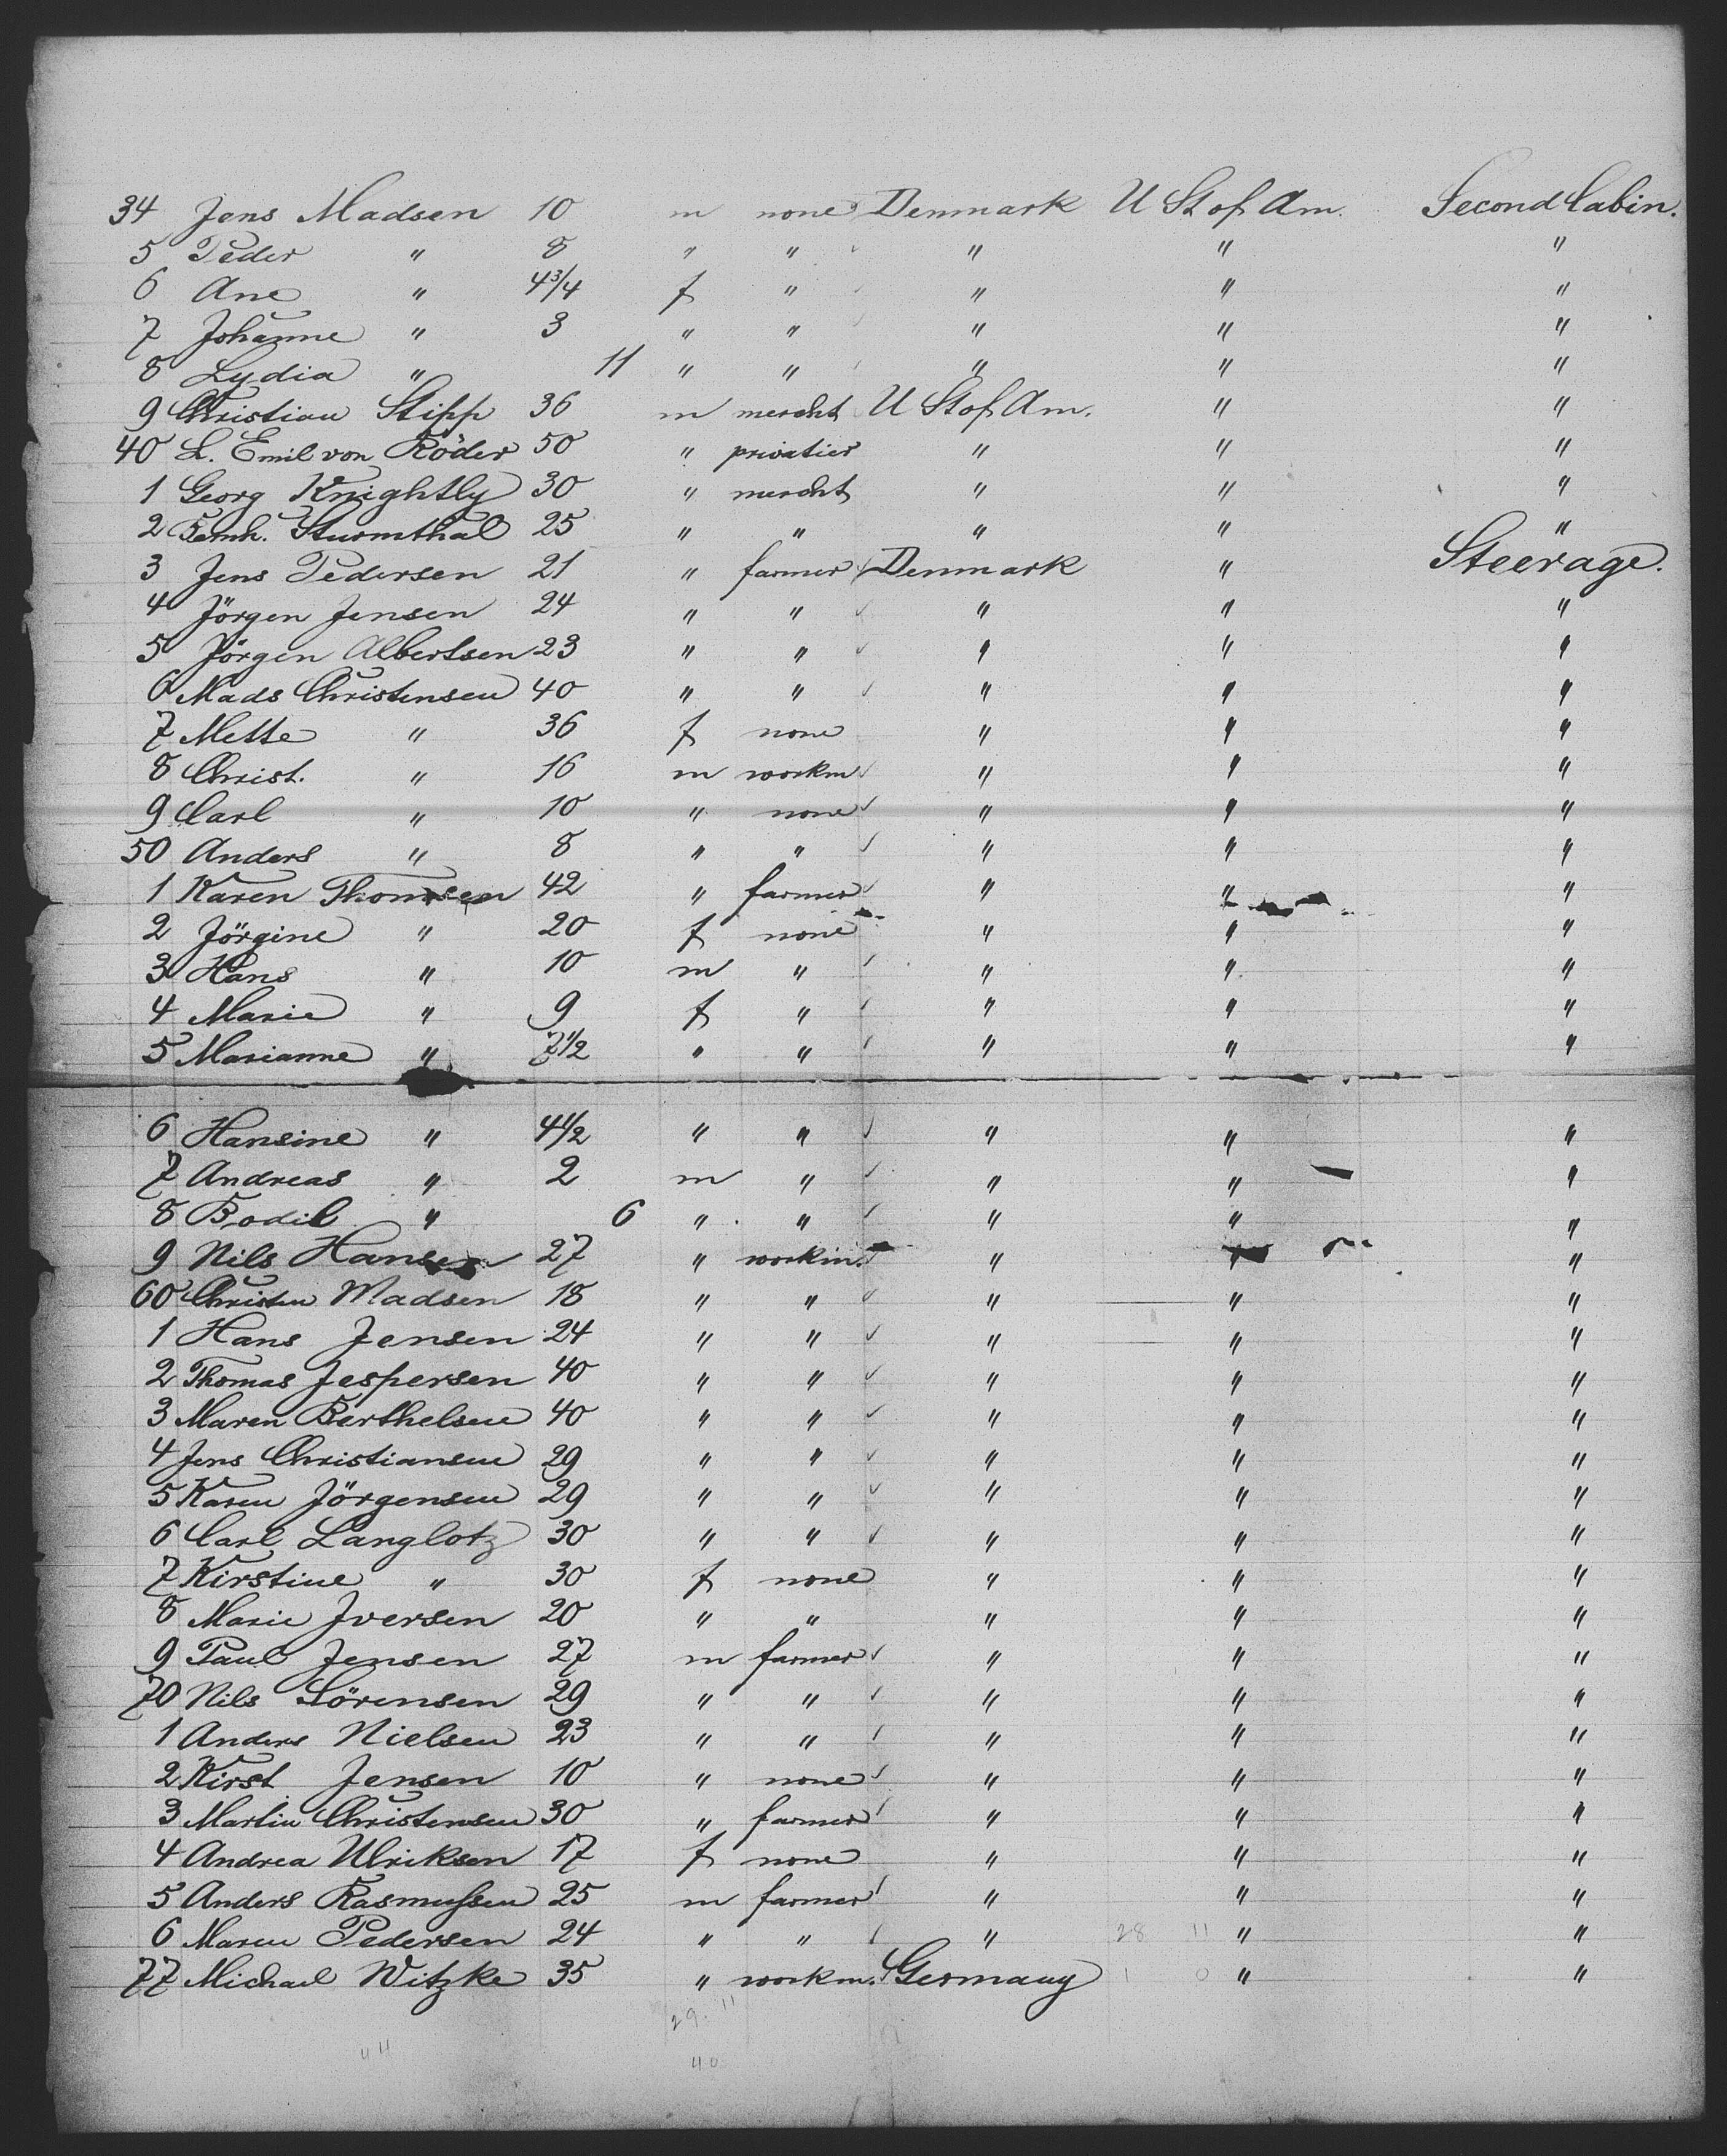 34 Jens Madsen 10 m none Denmark U St of Am. Second Cabin.
5 Peder " 8 " " " " "
6 Ane " 4 3/4 f " " " "
7 Johanne " 3 " " " " "
8 Lydia " 11 " " " " "
9 Christian Stipp 36 m mercht U St of Am. " "
40 L. Emil von Röder 50 " privatier " " "
1 Georg Knightly 30 " mercht " " "
2 Bernh. Sturmthal 25 " " " " "
3 Jens Pedersen 21 " farmer Denmark " Steerage.
4 Jörgen Jensen 24 " " " " "
5 Jörgen Albertsen 23 " " " " "
6 Mads Christensen 40 " " " " "
7 Mette " 36 f none " " "
8 Christ. " 16 m workm " " "
9 Carl " 10 " none " " "
50 Anders " 8 " " " " "
1 Karen Thomsen 42 " farmer " " "
2 Jörgine " 20 f none " " "
3 Hans " 10 m " " " "
4 Marie " 9 f " " " "
5 Marianne " 7 1/2 " " " " "
6 Hansine " 4 1/2 " " " " "
7 Andreas " 2 m " " " "
8 Bodil " 6 " " " " "
9 Nils Hansen 27 " workm. " " "
60 Christen Madsen 18 " " " " "
1 Hans Jensen 24 " " " " "
2 Thomas Jespersen 40 " " " " "
3 Maren Berthelsen 40 " " " " "
4 Jens Christiansen 29 " " " " "
5 Karen Jörgensen 29 " " " " "
6 Carl Langlotz 30 " " " " "
7 Kirstine " 30 f none " " "
8 Marie Iversen 20 " " " " "
9 Paul Jensen 27 m farmer " " "
70 Nils Sörensen 29 " " " " "
1 Anders Nielsen 23 " " " " "
2 Kirst Jensen 10 " none " " "
3 Martin Christensen 30 " farmer " " "
4 Andrea Ulriksen 17 f none " " "
5 Anders Rasmussen 25 m farmer " " "
6 Maren Pedersen 24 " " " 28 11 " "
77 Michael Witzke 35 " workm. Germany 1 0 " "
29. 11
44 40